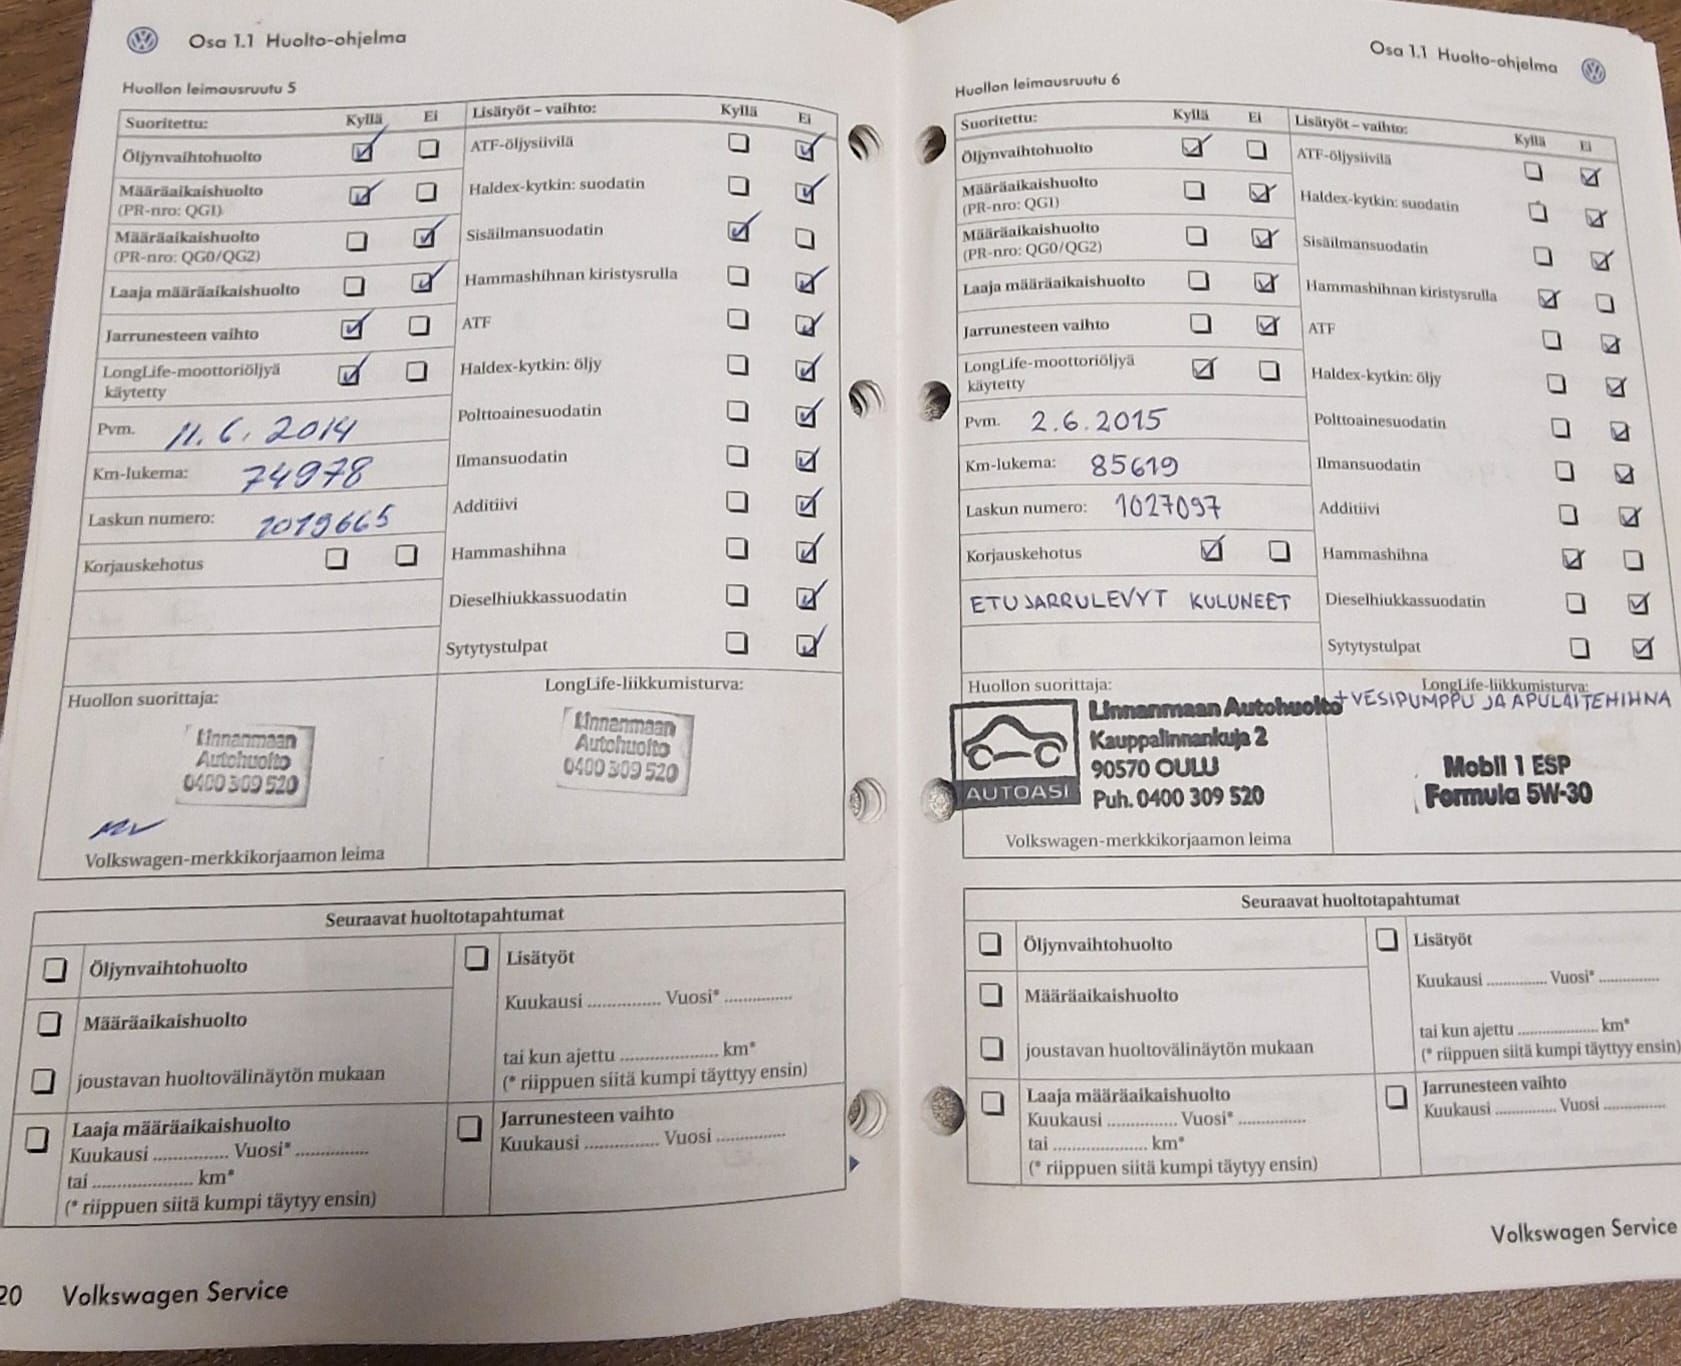 Osa 1.1 Huolto-ohjelma
Huollon leimausruutu 5
Suoritettu: Kyllä Ei
Öljynvaihtohuolto
Määräaikaishuolto
(PR-nro: QG1)
Määräaikaishuolto
(PR-nro: QG0/QG2)
Laaja määräaikaishuolto
Jarrunesteen vaihto
LongLife-moottoriöljyä
käytetty
Pvm. 11.6.2014
Km-lukema: 74978
Laskun numero: 1019665
Korjauskehotus
Lisätyöt – vaihto: Kyllä Ei
ATF-öljysiivilä
Haldex-kytkin: suodatin
Sisäilmansuodatin
Hammashihnan kiristysrulla
ATF
Haldex-kytkin: öljy
Polttoainesuodatin
Ilmansuodatin
Additiivi
Hammashihna
Dieselhiukkassuodatin
Sytytystulpat
Huollon suorittaja:
Linnanmaan
Autohuolto
0400 309 520
Volkswagen-merkkikorjaamon leima
LongLife-liikkumisturva:
Linnanmaan
Autohuolto
0400 309 520
Seuraavat huoltotapahtumat
Öljynvaihtohuolto
Määräaikaishuolto
joustavan huoltovälinäytön mukaan
Laaja määräaikaishuolto
Kuukausi .............. Vuosi* ..............
tai .................... km*
(* riippuen siitä kumpi täytyy ensin)
Lisätyöt
Kuukausi .............. Vuosi* ..............
tai kun ajettu .................... km*
(* riippuen siitä kumpi täyttyy ensin)
Jarrunesteen vaihto
Kuukausi .............. Vuosi ..............
20 Volkswagen Service
Osa 1.1 Huolto-ohjelma
Huollon leimausruutu 6
Suoritettu: Kyllä Ei
Öljynvaihtohuolto
Määräaikaishuolto
(PR-nro: QG1)
Määräaikaishuolto
(PR-nro: QG0/QG2)
Laaja määräaikaishuolto
Jarrunesteen vaihto
LongLife-moottoriöljyä
käytetty
Pvm. 2.6.2015
Km-lukema: 85619
Laskun numero: 1027097
Korjauskehotus
ETUJARRULEVYT KULUNEET
Lisätyöt – vaihto: Kyllä Ei
ATF-öljysiivilä
Haldex-kytkin: suodatin
Sisäilmansuodatin
Hammashihnan kiristysrulla
ATF
Haldex-kytkin: öljy
Polttoainesuodatin
Ilmansuodatin
Additiivi
Hammashihna
Dieselhiukkassuodatin
Sytytystulpat
Huollon suorittaja:
AUTOASI
Linnanmaan Autohuolto
Kauppalinnankuja 2
90570 OULU
Puh. 0400 309 520
Volkswagen-merkkikorjaamon leima
LongLife-liikkumisturva:
+VESIPUMPPU JA APULAITEHIHNA
Mobil 1 ESP
Formula 5W-30
Seuraavat huoltotapahtumat
Öljynvaihtohuolto
Määräaikaishuolto
joustavan huoltovälinäytön mukaan
Laaja määräaikaishuolto
Kuukausi .............. Vuosi* ..............
tai .................... km*
(* riippuen siitä kumpi täytyy ensin)
Lisätyöt
Kuukausi .............. Vuosi* ..............
tai kun ajettu .................... km*
(* riippuen siitä kumpi täyttyy ensin)
Jarrunesteen vaihto
Kuukausi .............. Vuosi ..............
Volkswagen Service